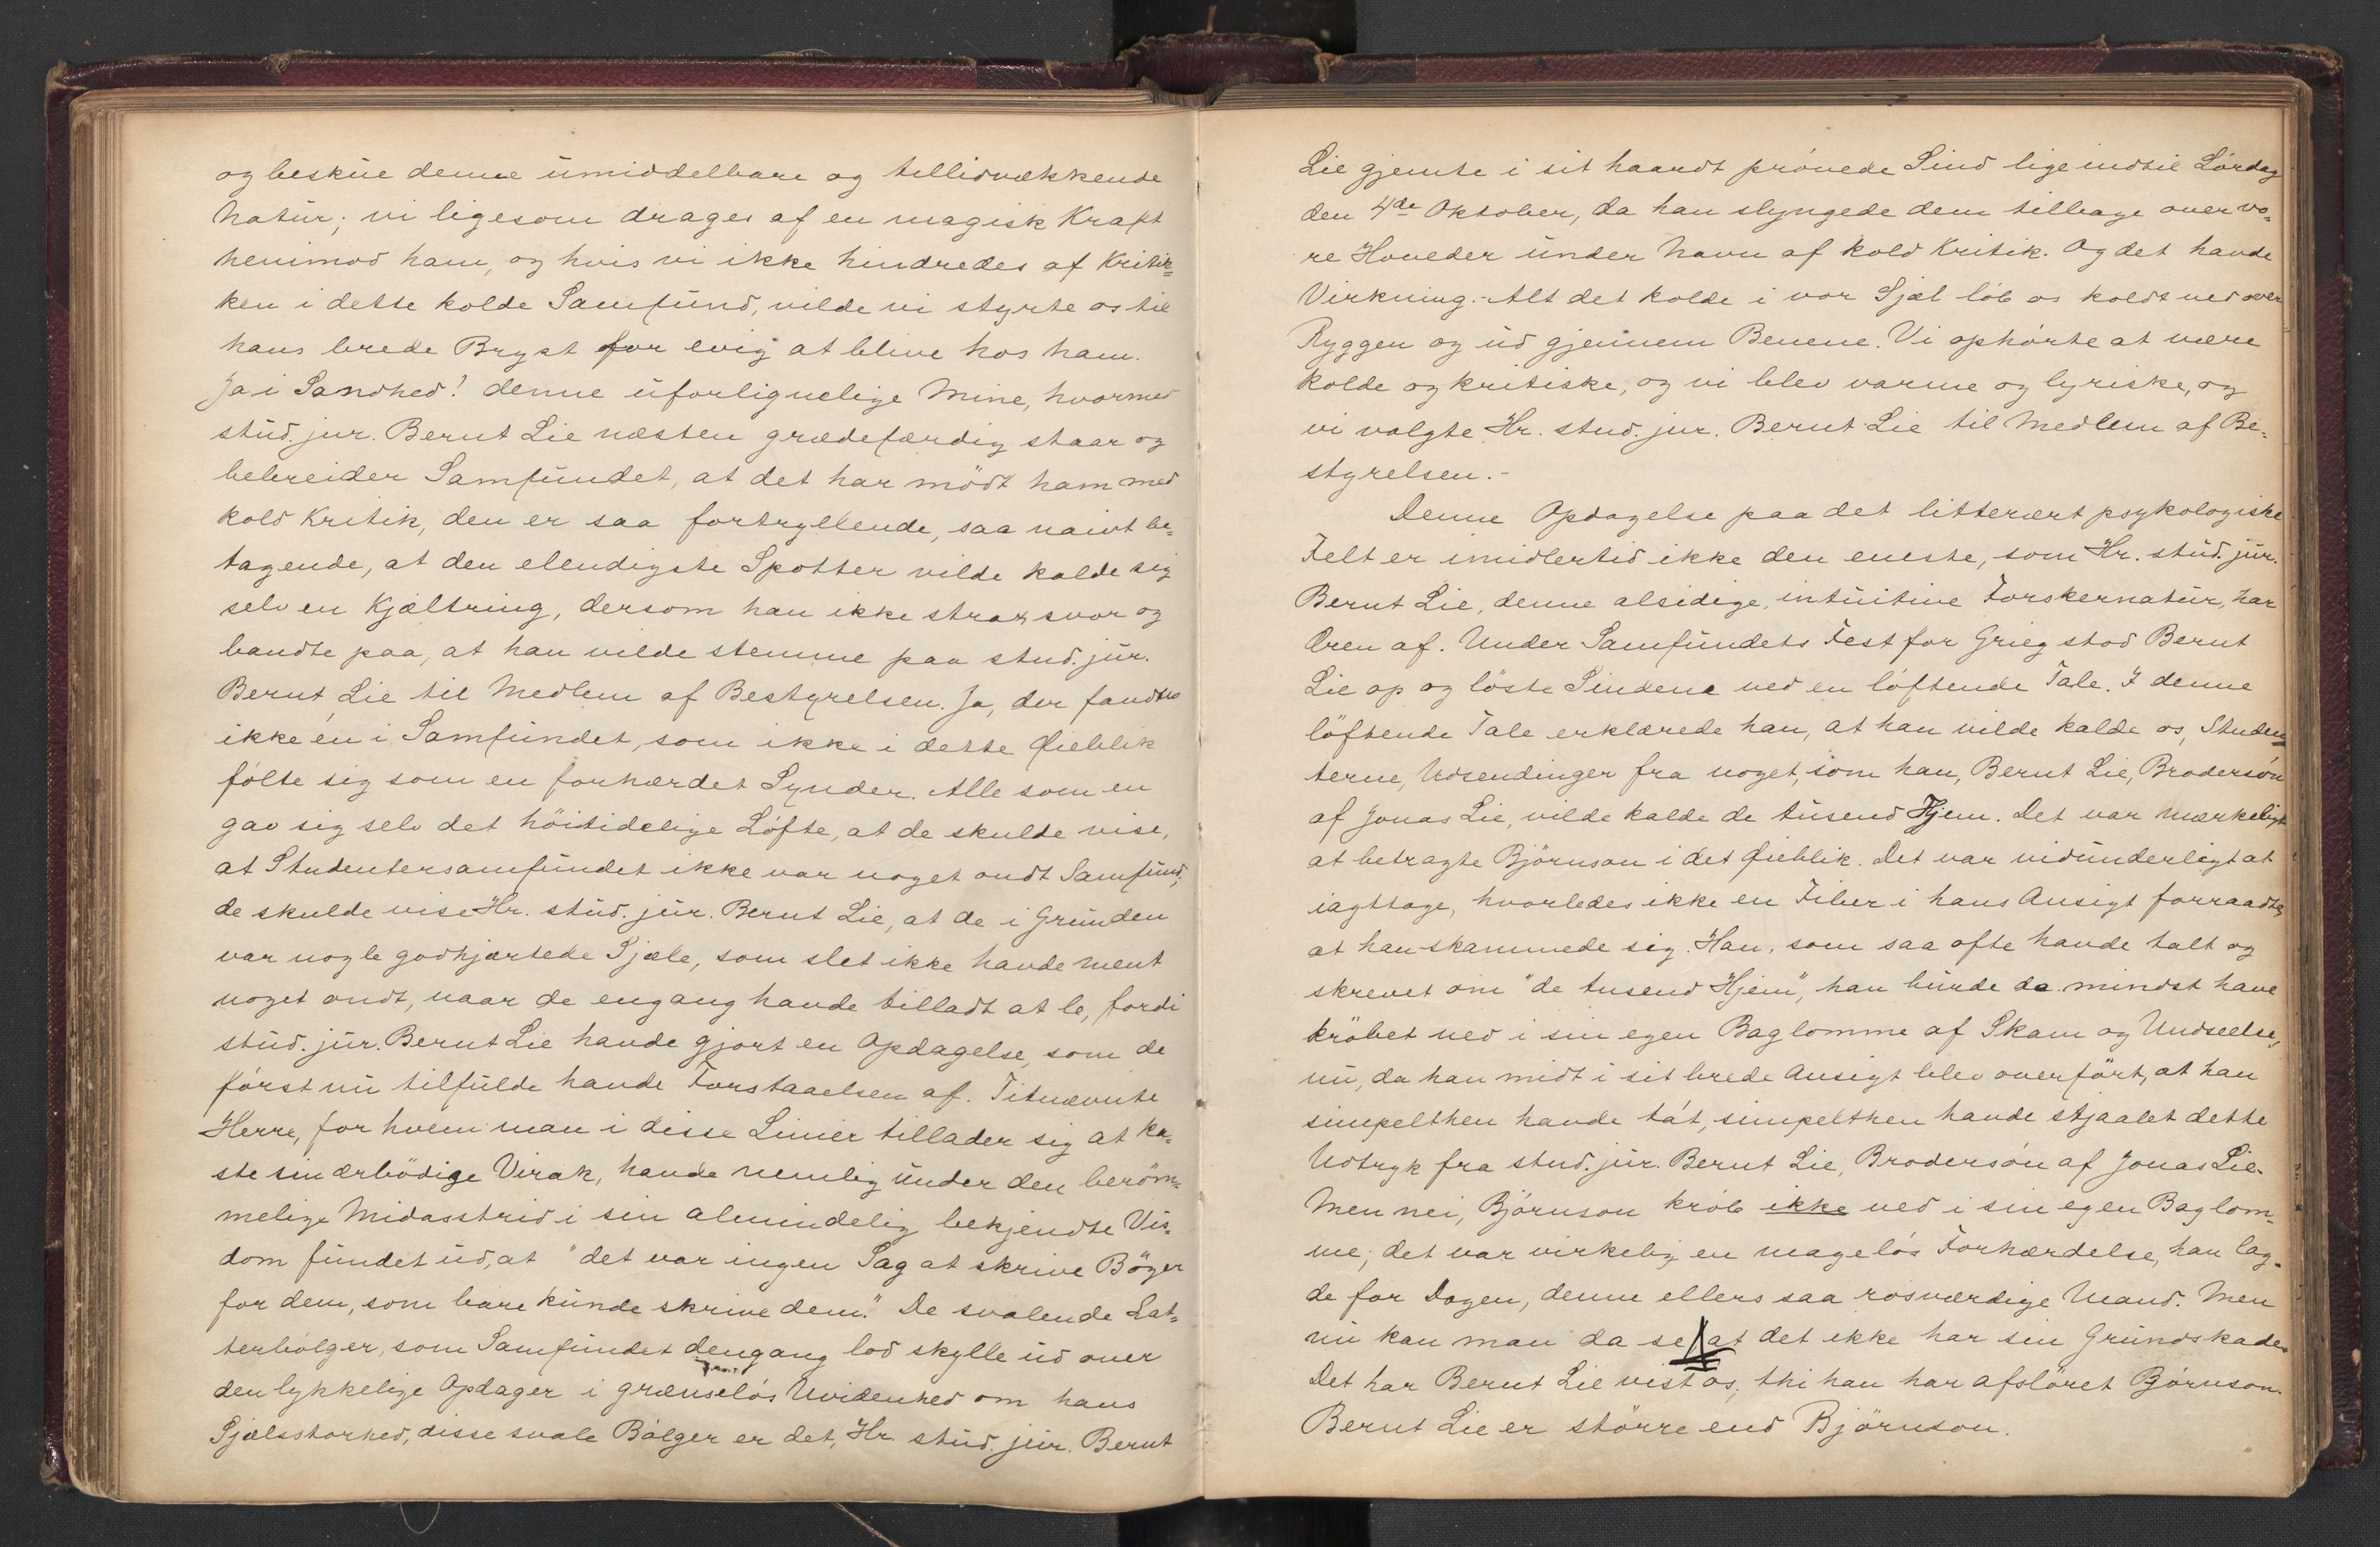 og beskue denne umiddelbare og tillidvækkende
Natur; vi ligesom drages af en magisk Kraft
henimod ham, og hvis vi ikke hindredes af Kritik=
ken i dette kolde Samfund, vilde vi styrte os til
hans brede Bryst for evig at blive hos ham.
Ja i Sandhed! denne uforlignelige Mine, hvormed
stud. jur. Bernt Lie næsten grædefærdig staar og
bebreider Samfundet, at det har mödt ham med
kold Kritik, den er saa fortryllende, saa naivt be=
tagende, at den elendigste Spotter vilde kalde sig
selv en Kjæltring, dersom han ikke strax svor og
bandte paa, at han vilde stemme paa stud. jur.
Bernt Lie til Medlem af Bestyrelsen. Ja, der fandtes
ikke én i Samfundet, som ikke i dette Øieblik
fölte sig som en forhærdet Synder. Alle som en
gav sig selv det höitidelige Löfte, at de skulde vise,
at Studentersamfundet ikke var noget ondt Samfund;
de skulde vise Hr. stud. jur. Bernt Lie, at de i Grunden
var nogle godhjærtede Sjæle, som slet ikke havde ment
noget ondt, naar de engang havde tilladt at le, fordi
stud. jur. Bernt Lie havde gjort en Opdagelse, som de
först nu tilfulde havde Forstaaelsen af. Titnævnte
Herre, for hvem man i disse Linier tillader sig at ka=
ste sin ærbödige Virak, havde nemlig under den beröm=
melige Midasstrid i sin almindelig bekjendte Vis=
dom fundet ud, at "det var ingen Sag at skrive Böger
for dem, som bare kunde skrive dem." De svalende Lat=
terbölger, som Samfundet dengang lod skylle ud over
den lykkelige Opdager i grænselös Uvidenhed om hans
Sjælsstorhed, disse svale Bölger er det, Hr. stud. jur. Bernt
Lie gjemte i sit haardt prövede Sind lige indtil Lördag
den 4de Oktober, da han slyngede dem tilbage over vo=
re Hoveder under Navn af kold Kritik. Og det havde
Virkning. - Alt det kolde i vor Sjæl löb os koldt ned over
Ryggen og ud gjennem Benene. Vi ophörte at være
kolde og kritiske, og vi blev varme og lyriske, og
vi valgte Hr. stud. jur. Bernt Lie til Medlem af Be=
styrelsen. -
Denne Opdagelse paa det litterært psykologiske
Felt er imidlertid ikke den eneste, som Hr. stud. jur.
Bernt Lie, denne alsidige, intuitive Forskernatur, har
Æren af. Under Samfundets Fest for Grieg stod Bernt
Lie op og löste Sindene ved en löftende Tale. I denne
löftende Tale erklærede han, at han vilde kalde os, Studen=
terne, Udsendinger fra noget, som han, Bernt Lie, Brodersön
af Jonas Lie, vilde kalde de tusend Hjem. Det var mærkeligt
at betragte Björnson i det Øieblik. Det var vidunderligt at
iagttage, hvorledes ikke en Fiber i hans Ansigt forraadte,
at han skammede sig. Han, som saa ofte havde talt og
skrevet om "de tusend Hjem", han burde da mindst have
kröbet ned i sin egen Baglomme af Skam og Undseelse,
nu, da han midt i sit brede Ansigt blev overfört, at han
simpelthen havde ta't, simpelthen havde stjaalet dette
Udtryk fra stud. jur. Bernt Lie, Brodersön af Jonas Lie.
Men nei, Björnson kröb ikke ned i sin egen Baglom=
me; det var virkelig en magelös Forhærdelse, han lag=
de for Dagen, denne ellers saa rosværdige Mand. Men
nu kan man da se, at det ikke har sin Grundskade.
Det har Bernt Lie vist os; thi han har afslöret Björnson.
Bernt Lie er större end Björnson.